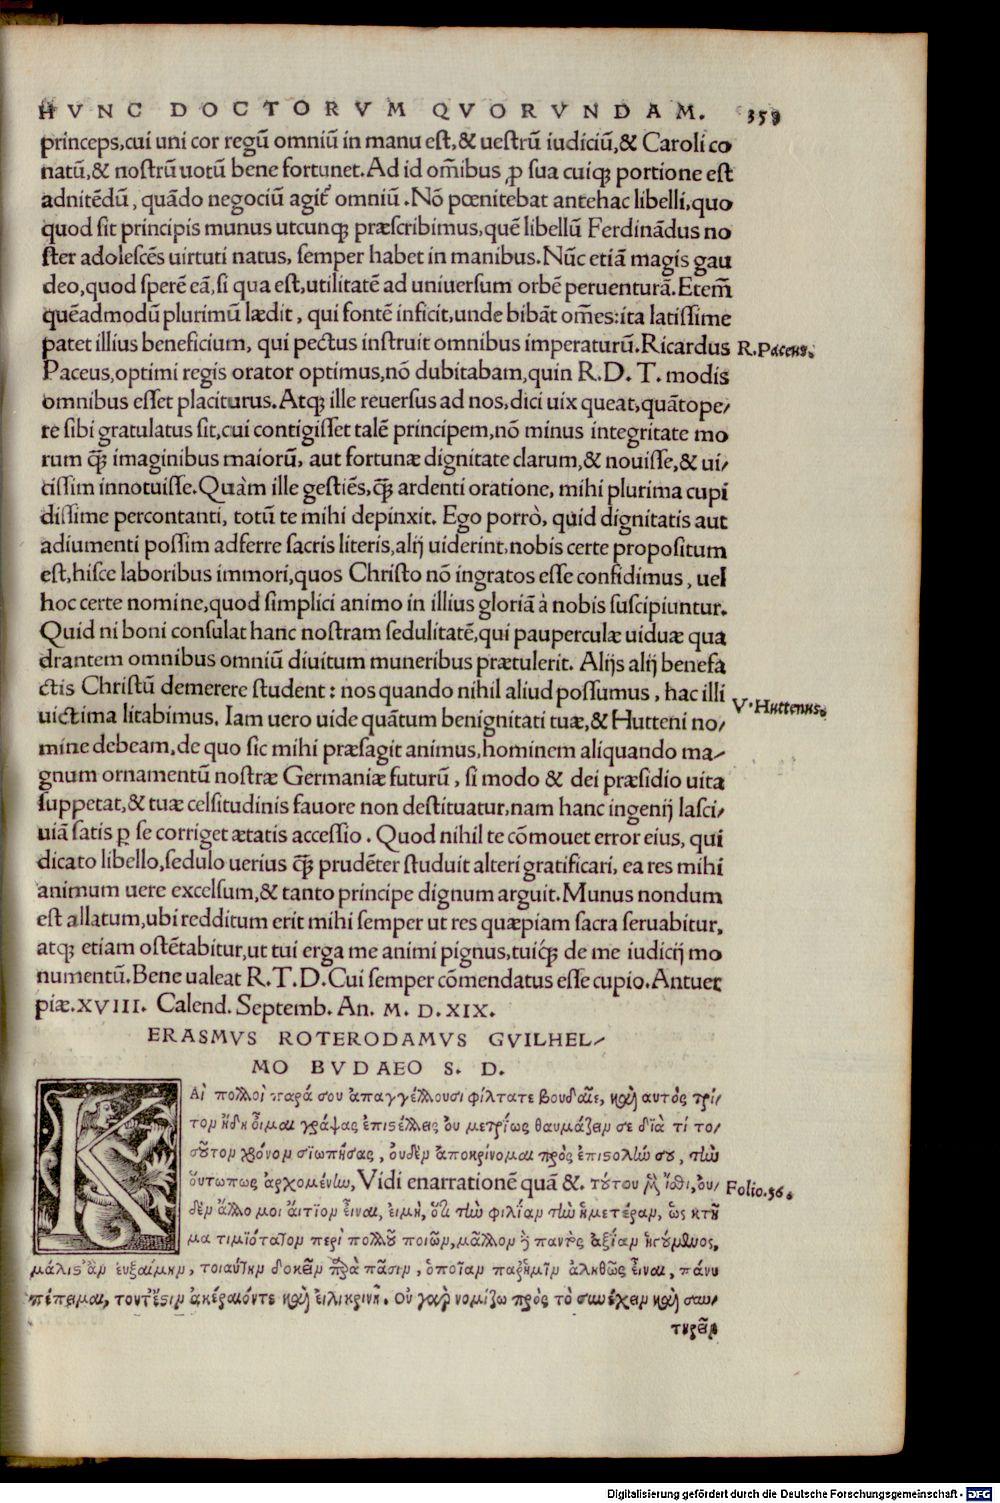 HVNC DOCTORVM QVORVNDAM. 359
princeps,cui uni cor regū omniū in manu est,& uestrū iudiciū,& Caroli co
natū,& nostrū uotū bene fortunet.Ad id om̄ibus ꝓ sua cuiqꝫ portione est
adnitēdū, quādo negociū agit᷑ omniū.Nō pœnitebat antehac libelli,quo
quod sit principis munus utcunqꝫ præscribimus,quē libellū Ferdinādus no
ster adolescēs uirtuti natus, semper habet in manibus.Nūc etiā magis gau
deo,quod sperē eā,si qua est,utilitatē ad uniuersum orbē peruenturā.Etem̄
quēadmodū plurimū lædit, qui fontē inficit,unde bibāt om̄es:ita latissime
patet illius beneficium, qui pectus instruit omnibus imperaturū.Ricardus R.Paceus.
Paceus,optimi regis orator optimus,nō dubitabam,quin R.D.T. modis
omnibus esset placiturus.Atqꝫ ille reuersus ad nos,dici uix queat,quātope/
re sibi gratulatus sit,cui contigisset talē principem,nō minus integritate mo
rum ꝙ̄ imaginibus maiorū, aut fortunæ dignitate clarum,& nouisse,& ui/
cissim innotuisse.Quàm ille gestiēs,ꝙ̄ ardenti oratione, mihi plurima cupi
dissime percontanti, totū te mihi depinxit. Ego porrò, quid dignitatis aut
adiumenti possim adferre sacris literis,alij uiderint,nobis certe propositum
est,hisce laboribus immori,quos Christo nō ingratos esse confidimus, uel
hoc certe nomine,quod simplici animo in illius gloriā à nobis suscipiuntur.
Quid ni boni consulat hanc nostram sedulitatē,qui pauperculæ uiduæ qua
drantem omnibus omniū diuitum muneribus prætulerit. Alijs alij benefa
ctis Christū demerere student: nos quando nihil aliud possumus, hac illi
uictima litabimus. Iam uero uide quātum benignitati tuæ,& Hutteni no/ V.Huttenus.
mine debeam,de quo sic mihi præsagit animus,hominem aliquando ma/
gnum ornamentū nostræ Germaniæ futurū, si modo & dei præsidio uita
suppetat,& tuæ celsitudinis fauore non destituatur,nam hanc ingenij lasci/
uiā satis ꝑ se corriget ætatis accessio. Quod nihil te cōmouet error eius, qui
dicato libello,sedulo uerius ꝙ̄ prudēter studuit alteri gratificari, ea res mihi
animum uere excelsum,& tanto principe dignum arguit.Munus nondum
est allatum,ubi redditum erit mihi semper ut res quæpiam sacra seruabitur,
atqꝫ etiam ostētabitur,ut tui erga me animi pignus,tuiqꝫ de me iudicij mo
numentū.Bene ualeat R.T.D.Cui semper cōmendatus esse cupio.Antuer
piæ.XVIII. Calend. Septemb. An. M. D. XIX.
ERASMVS ROTERODAMVS GVILHEL/
MO BVDAEO S. D.
Καὶ πολλοὶ παρά σου ἀπαγγέλλουσι φίλτατε βουδαῖε, καὶ αυτός τρί/
τον ἤδη ὄιμαι γράψας ἐπιστέλλεις ὀυ μετρίως θαυμάζειν σε διὰ τί το/
σοῦτον χρόνον σιωπήσας, ὀυδὲν ἀποκρίνομαι πρὸς ἐπιστολὴν σου, τὴν
ὅυτωπως ἀρχομένην, Vidi enarrationē quā &. τόυτου μὲν ἴσθι, ὀυ/ Folio.56.
δὲν ἄλλο μοι ἄιτιον εἶναι, ἐιμὴ, ὅτι τὴν φιλίαν τὴν ἡμετέραν, ὡς κτῆ
μα τιμιότατον περὶ πολλοῦ ποιῶν, μᾶλλον ἢ παντὸς ἀξίαν ἡγούμενος,
μάλιστ᾽ ἂν ἐυξαίμην, τοιαύτην δοκεῖν παρὰ πᾶσιν, ὁποῖαν παρ᾽ἡμῖν ἀληθῶς εἶναι, πάνυ
πέπεισμαι, τουτέστιν ἀκέραιόντε καὶ ἐιλικρινῆ. Οὐ γὰρ νομίζω πρὸς τὸ συνέχειν καὶ συν/
τηρεῖν
Digitalisierung gefördert durch die Deutsche Forschungsgemeinschaft - DFG